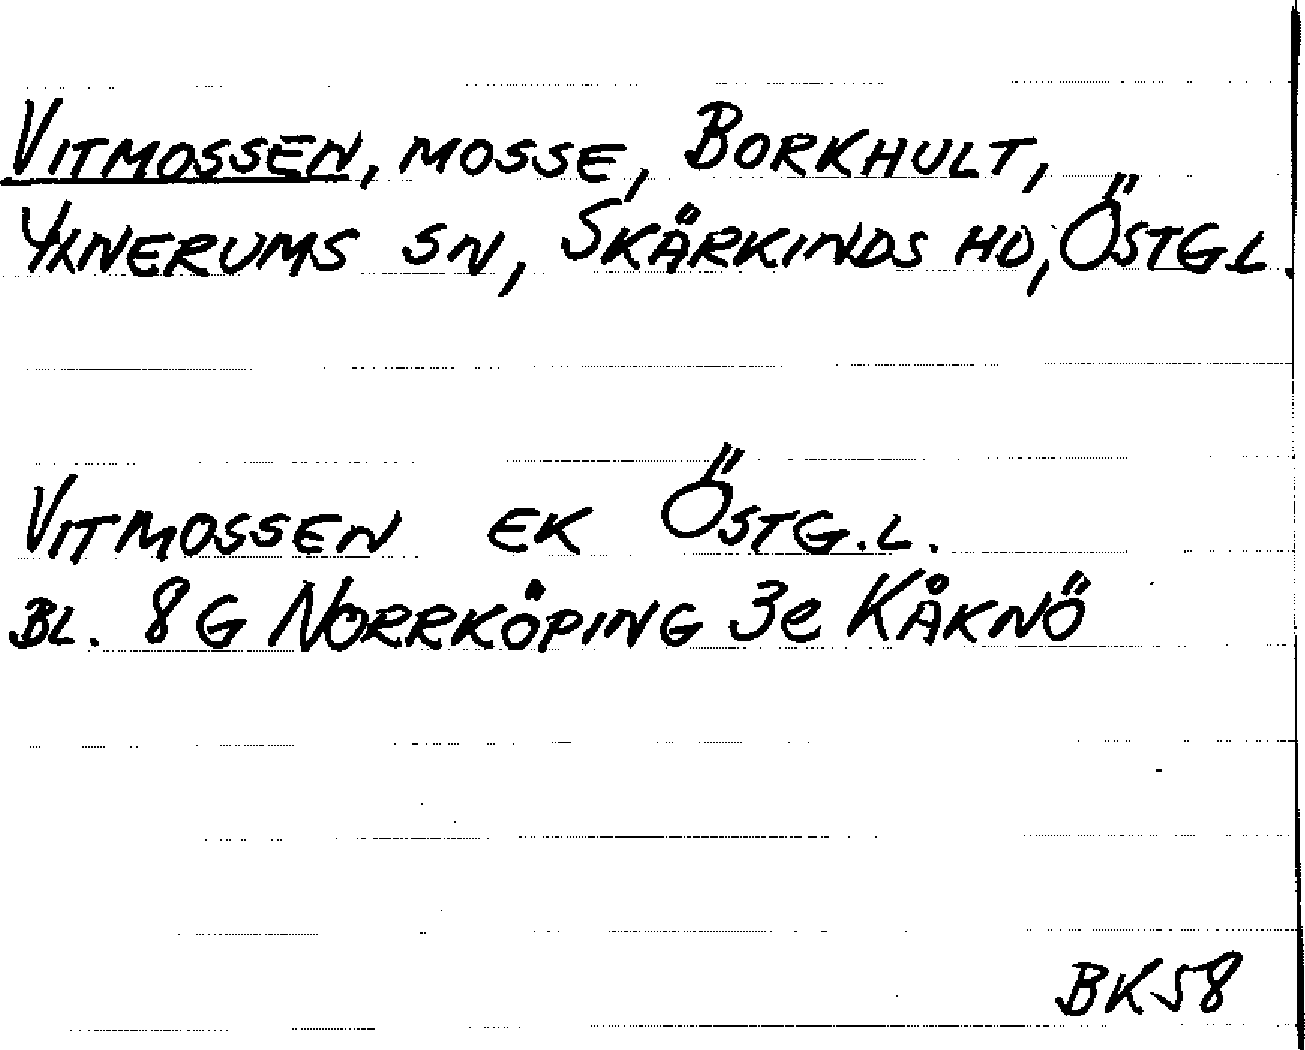 VITMOSSEN, MOSSE, BORKHULT,
YXNERUMS SN, SKÄRKINDS HD, ÖSTG.L.
VITMOSSEN EK ÖSTG.L.
BL. 8G NORRKÖPING 3e KÅKNÖ
BK58